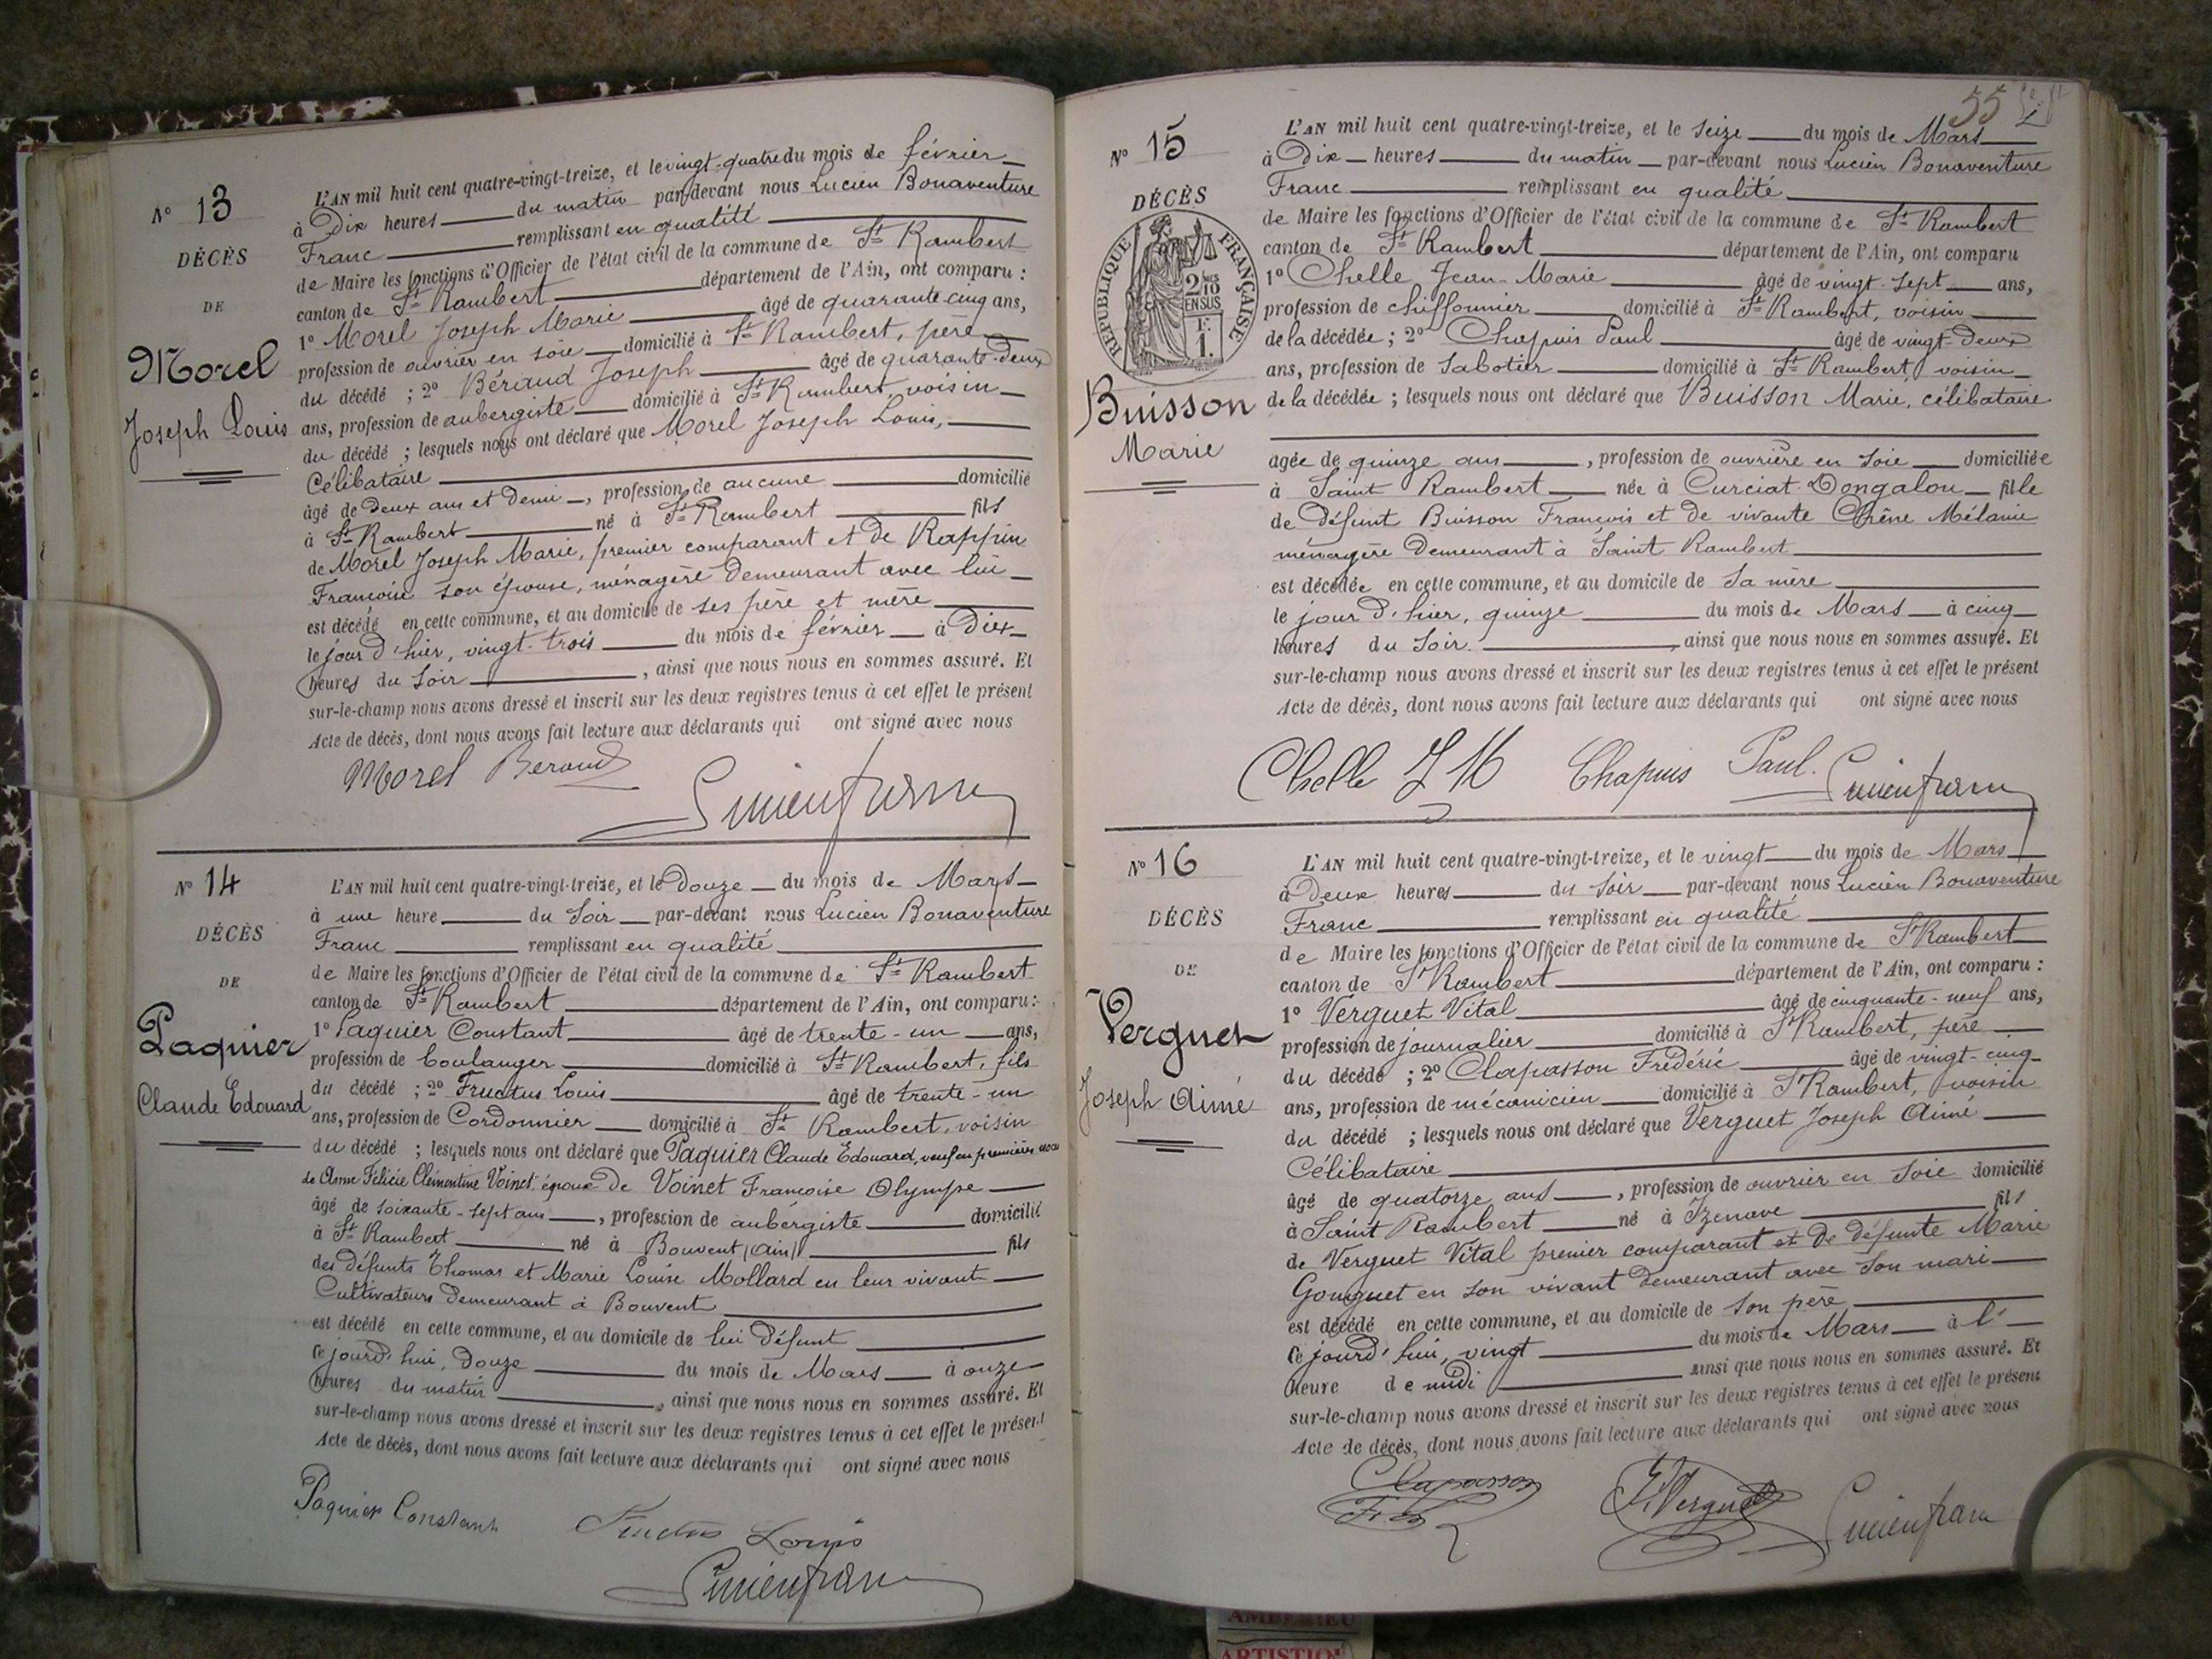 N° 13
DÉCÈS
DE
Morel
Joseph Louis
L'AN mil huit cent quatre-vingt-treize, et le vingt-quatre du mois de février
à Dix heures du matin par-devant nous Lucien Bonaventure
Franc remplissant en qualité
de Maire les fonctions d'Officier de l'état civil de la commune de St Rambert
canton de St Rambert département de l'Ain, ont comparu :
1° Morel Joseph Marie âgé de quarante-cinq ans,
profession de ouvrier en soie domicilié à St Rambert, père
du décédé ; 2° Béraud Joseph âgé de quarante-deux
ans, profession de aubergiste domicilié à St Rambert, voisin
du décédé ; lesquels nous ont déclaré que Morel Joseph Louis,
Célibataire
âgé de deux ans et demi, profession de aucune domicilié
à St Rambert né à St Rambert fils
de Morel Joseph Marie, premier comparant et de Rappin
Françoise son épouse, ménagère demeurant avec lui
est décédé en cette commune, et au domicile de ses père et mère
le jour d'hier, vingt-trois du mois de février à Dix
heures du soir, ainsi que nous nous en sommes assuré. Et
sur-le-champ nous avons dressé et inscrit sur les deux registres tenus à cet effet le présent
Acte de décès, dont nous avons fait lecture aux déclarants qui ont signé avec nous
Morel Beraud
Lucien franc
N° 14
DÉCÈS
DE
Paquier
Claude Edouard
L'AN mil huit cent quatre-vingt-treize, et le Douze du mois de Mars
à une heure du soir par-devant nous Lucien Bonaventure
Franc remplissant en qualité
de Maire les fonctions d'Officier de l'état civil de la commune de St Rambert
canton de St Rambert département de l'Ain, ont comparu :
1° Paquier Constant âgé de trente-un ans,
profession de boulanger domicilié à St Rambert, fils
du décédé ; 2° Fructus Louis âgé de trente-un
ans, profession de Cordonnier domicilié à St Rambert, voisin
du décédé ; lesquels nous ont déclaré que Paquier Claude Edouard, veuf en premières noces
de Anne Félicie Clémentine Voinet, époux de Voinet Françoise Olympe
âgé de soixante-sept ans, profession de aubergiste domicilié
à St Rambert né à Bouvent (Ain) fils
des défunts Thomas et Marie Louise Mollard en leur vivant
Cultivateurs demeurant à Bouvent
est décédé en cette commune, et au domicile de lui défunt
ce jourd'hui, douze du mois de Mars à onze
heures du matin, ainsi que nous nous en sommes assuré. Et
sur-le-champ nous avons dressé et inscrit sur les deux registres tenus à cet effet le présent
Acte de décès, dont nous avons fait lecture aux déclarants qui ont signé avec nous
Paquier Constant
Fructus Louis
Lucien franc
55
N° 15
DÉCÈS
RÉPUBLIQUE FRANÇAISE
2/10 EN SUS
F. 1.
Buisson
Marie
L'AN mil huit cent quatre-vingt-treize, et le seize du mois de Mars
à Dix heures du matin par-devant nous Lucien Bonaventure
Franc remplissant en qualité
de Maire les fonctions d'Officier de l'état civil de la commune de St Rambert
canton de St Rambert département de l'Ain, ont comparu
1° Chelle Jean-Marie âgé de vingt-sept ans,
profession de chiffonnier domicilié à St Rambert, voisin
de la décédée ; 2° Chapuis Paul âgé de vingt-deux
ans, profession de sabotier domicilié à St Rambert, voisin
de la décédée ; lesquels nous ont déclaré que Buisson Marie, célibataire
agée de quinze ans, profession de ouvrière en soie domiciliée
à Saint Rambert née à Curciat-Dongalon fille
de défunt Buisson François et de vivante Chêne Mélanie
ménagère demeurant à Saint Rambert
est décédée en cette commune, et au domicile de sa mère
le jour d'hier, quinze du mois de Mars à cinq
heures du soir, ainsi que nous nous en sommes assuré. Et
sur-le-champ nous avons dressé et inscrit sur les deux registres tenus à cet effet le présent
Acte de décès, dont nous avons fait lecture aux déclarants qui ont signé avec nous
Chelle J M Chapuis Paul. Lucien franc
N° 16
DÉCÈS
DE
Verguet
Joseph Aimé
L'AN mil huit cent quatre-vingt-treize, et le vingt du mois de Mars
à Deux heures du soir par-devant nous Lucien Bonaventure
Franc remplissant en qualité
de Maire les fonctions d'Officier de l'état civil de la commune de St Rambert
canton de St Rambert département de l'Ain, ont comparu :
1° Verguet Vital âgé de cinquante-neuf ans,
profession de journalier domicilié à St Rambert, père
du décédé ; 2° Clapasson Frédéric âgé de vingt-cinq
ans, profession de mécanicien domicilié à St Rambert, voisin
du décédé ; lesquels nous ont déclaré que Verguet Joseph Aimé
Célibataire
âgé de quatorze ans, profession de ouvrier en soie domicilié
à Saint Rambert né à Izenave fils
de Verguet Vital premier comparant et de défunte Marie
Gouguet en son vivant demeurant avec son mari
est décédé en cette commune, et au domicile de son père
ce jourd'hui, vingt du mois de Mars à l'
heure de midi ainsi que nous nous en sommes assuré. Et
sur-le-champ nous avons dressé et inscrit sur les deux registres tenus à cet effet le présent
Acte de décès, dont nous avons fait lecture aux déclarants qui ont signé avec nous
Clapasson
Verguet Lucien franc
AMBERIEU
ARTISTIQU